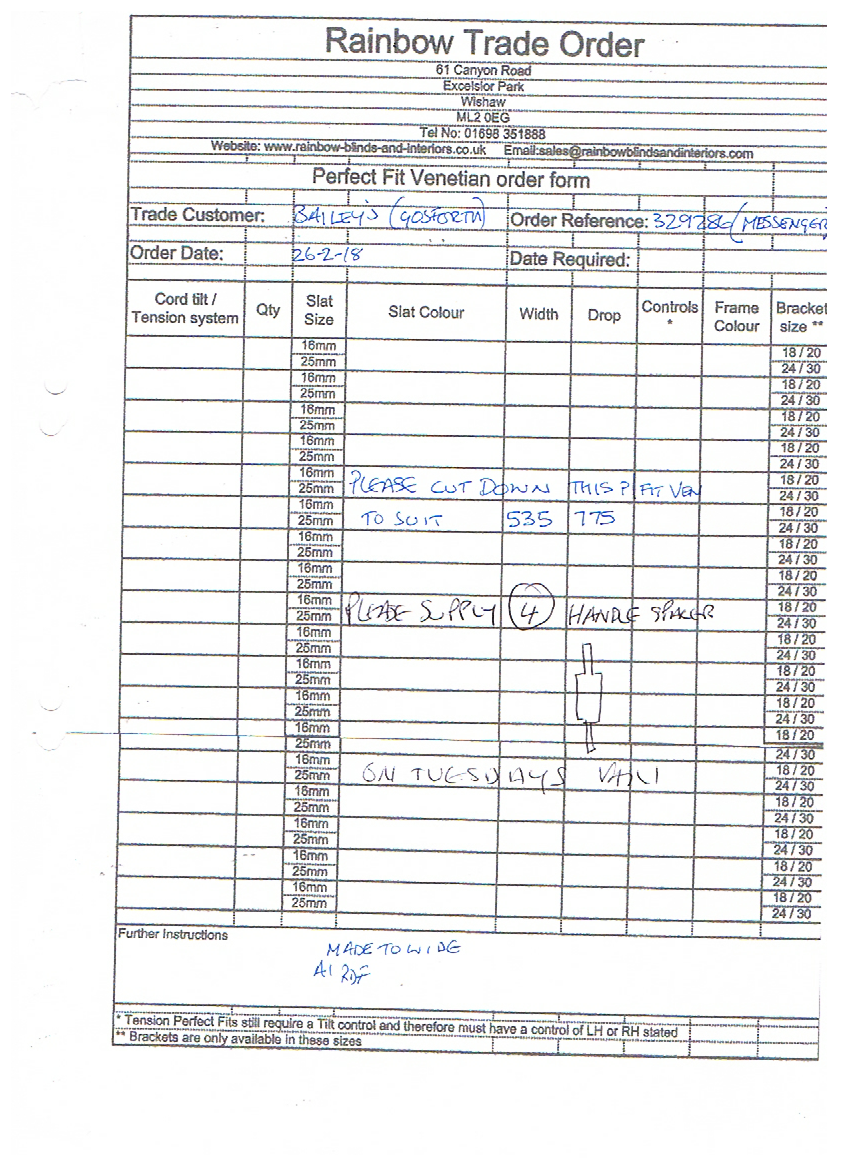 Rainbow Trade Order
61 Canyon Road
Excelsior Park
Wishaw
ML2 0EG
Tel No: 01698 351888
Website: www.rainbow-blinds-and-interiors.co.uk Email:sales@rainbowblindsandinteriors.com
Perfect Fit Venetian order form
Trade Customer: BAILEY'S (GOSFORTH) Order Reference: 329286 (MESSENGER
Order Date: 26-2-18 Date Required:
Cord tilt / Tension system Qty Slat Size Slat Colour Width Drop Controls * Frame Colour Bracket size **
16mm 18 / 20
25mm 24 / 30
16mm 18 / 20
25mm 24 / 30
16mm 18 / 20
25mm 24 / 30
16mm 18 / 20
25mm 24 / 30
16mm 18 / 20
25mm PLEASE CUT DOWN THIS P FIT VEN 24 / 30
16mm 18 / 20
25mm TO SUIT 535 775 24 / 30
16mm 18 / 20
25mm 24 / 30
16mm 18 / 20
25mm 24 / 30
16mm 18 / 20
25mm PLEASE SUPPLY 4 HANDLE SPACER 24 / 30
16mm 18 / 20
25mm 24 / 30
16mm 18 / 20
25mm 24 / 30
16mm 18 / 20
25mm 24 / 30
16mm 18 / 20
25mm 24 / 30
16mm 18 / 20
25mm ON TUESDAYS VAN 24 / 30
16mm 18 / 20
25mm 24 / 30
16mm 18 / 20
25mm 24 / 30
16mm 18 / 20
25mm 24 / 30
16mm 18 / 20
25mm 24 / 30
Further Instructions
MADE TO WIDE
* Tension Perfect Fits still require a Tilt control and therefore must have a control of LH or RH stated
** Brackets are only available in these sizes